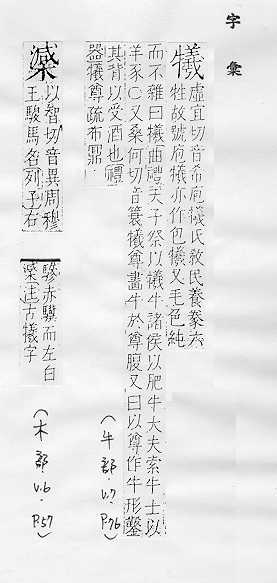 字彙
犧 虛宜切音希庖犧氏敎民養豢六
牲故號庖犧亦作包犧又毛色純
而不雜曰犧曲禮天子祭以犧牛諸侯以肥牛大夫索牛士以
羊豕〇又桑何切音蓑犧尊畫牛於尊腹又曰以尊作牛形鑿
其背以受酒也禮
器犧尊疏布鼏
(牛部.v.7.P.76)
以智切音異周穆
王駿馬名列子右
驂赤驥而左白
[注]古犧字
(木部.v.6.P.57)